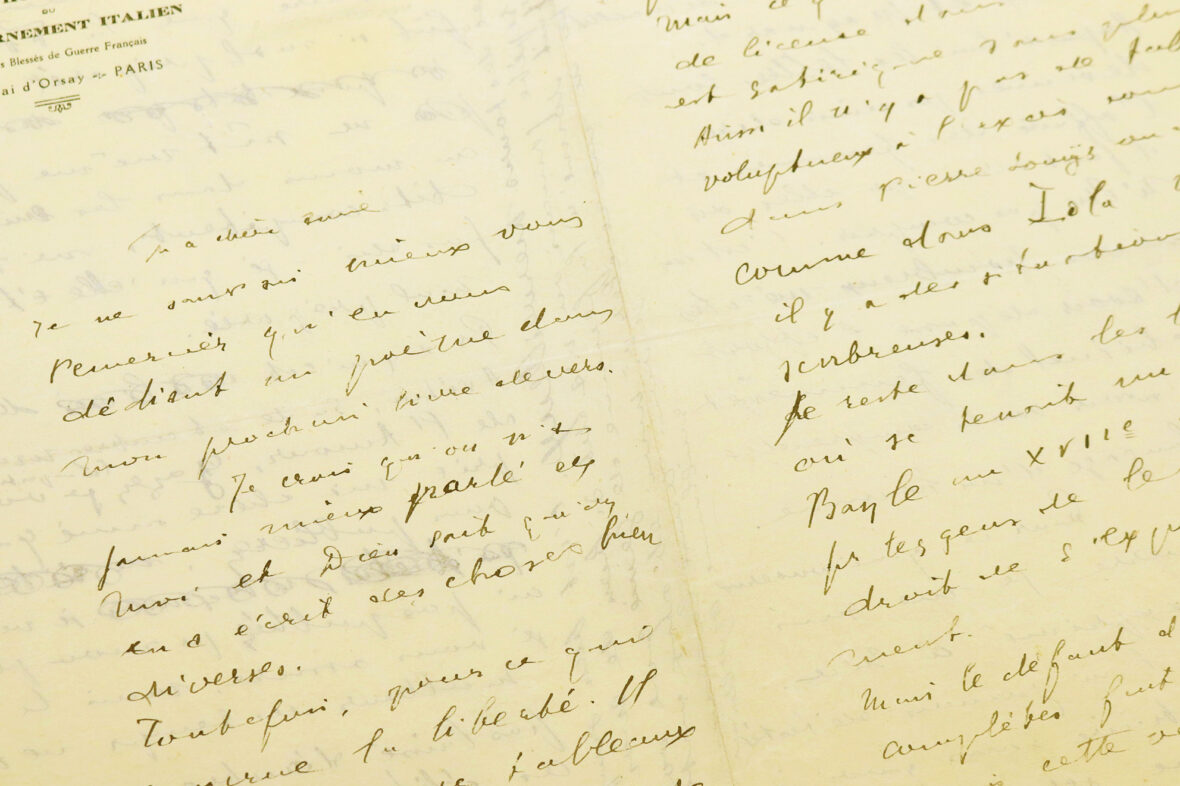 DU
RNEMENT ITALIEN
s Blessés de Guerre Français
ai d'Orsay PARIS
Ma chère amie
Je ne saurai mieux vous
remercier qu'en vous
dédiant un poème dans
mon prochain livre de vers.
Je crois qu'on n'a
jamais mieux parlé de
moi et Dieu sait qu'on
en a écrit des choses bien
diverses.
Toutefois, pour ce qui
la liberté. Il
tableaux
mais il
de licence dans
est satirique sans
Aussi il n'y a pas de
voluptueux à l'excès
dans Pierre Louÿs ou
comme dans Zola
il y a des situations
scabreuses.
Je reste dans les
où se tenait un
Bayle au XVIIe
et les gens de le
droit de s'exp
ment.
Mais le défaut d
complètes fait
cette